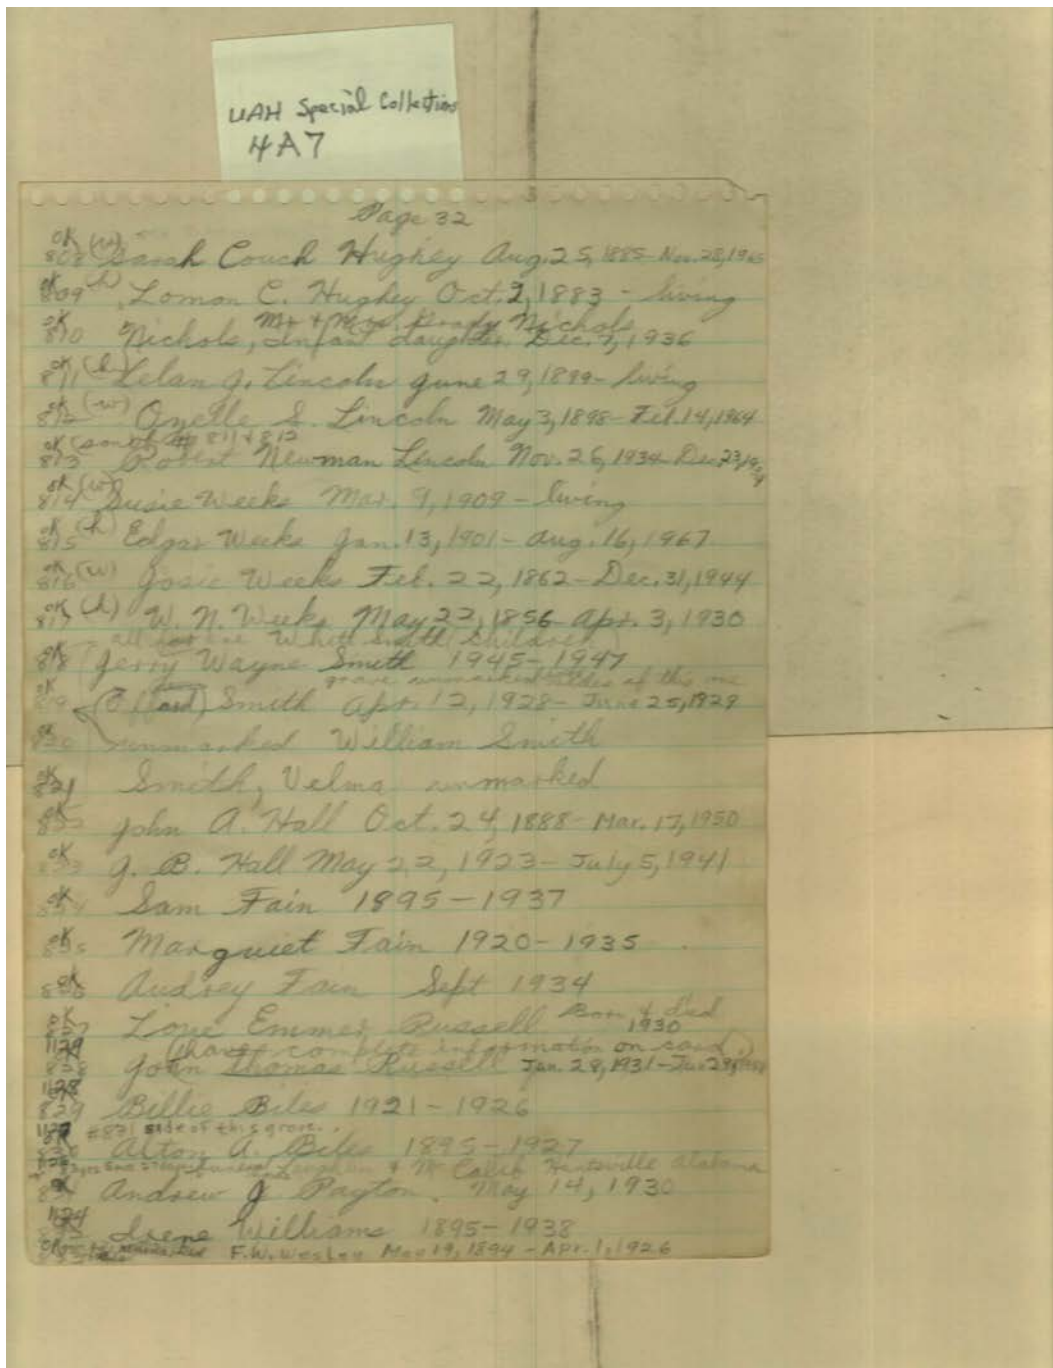 UAH Special Collections
4A7
Page 32
OK (w)
808 Sarah Couch Hughey Aug. 25, 1885 - Nov. 28, 1965
OK (h)
809 Loman C. Hughey Oct. 2, 1883 - living
OK Mr + Mrs. Grady Nichols
810 Nichols, Infant daughter Dec. 7, 1936
OK (h)
811 Lelan J. Lincoln June 29, 1899 - living
OK (w)
812 Ozelle S. Lincoln May 3, 1898 - Feb. 14, 1964
OK (son of # 811 + 812
813 Robert Newman Lincoln Nov. 26, 1934 - Dec. 23,
OK (w)
814 Susie Weeks Mar. 9, 1909 - living
OK (h)
815 Edgar Weeks Jan. 13, 1901 - Aug. 16, 1967
OK (w)
816 Josie Weeks Feb. 22, 1862 - Dec. 31, 1944
OK (h)
817 W. N. Weeks May 22, 1856 - Apr. 3, 1930
all White Smith Children)
OK
818 Jerry Wayne Smith 1945 - 1947
grave unmarked side of this one
OK
819 Smith Apr. 12, 1928 - June 25, 1929
820 unmarked William Smith
OK
821 Smith, Velma unmarked
OK
822 John A. Hall Oct. 24, 1888 - Mar. 17, 1950
OK
823 J. B. Hall May 22, 1923 - July 5, 1941
OK
824 Sam Fain 1895 - 1937
OK
825 Marguiet Fain 1920 - 1935
OK
826 Audrey Fain Sept 1934
OK Born & died
827 Emmer Russell 1930
1129 (have complete information on card)
828 John Thomas Russell Jan. 28, 1931 - Jan 29,
1128
829 Billie Biles 1921 - 1926
#831 side of this grave.
OK
830 Alton A. Biles 1895 - 1927
Laughlin & Mc Caleb Huntsville Alabama
OK Andrew J Payton. May 14, 1930
1124
Irene Williams 1895 - 1938
F. W. Wesley May 19, 1894 - Apr. 1, 1926